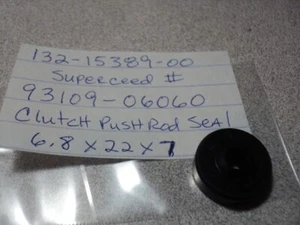 132-15389-00
Superceed #
93109-06060
Clutch Push Rod Seal
6.8 x 22 x 7